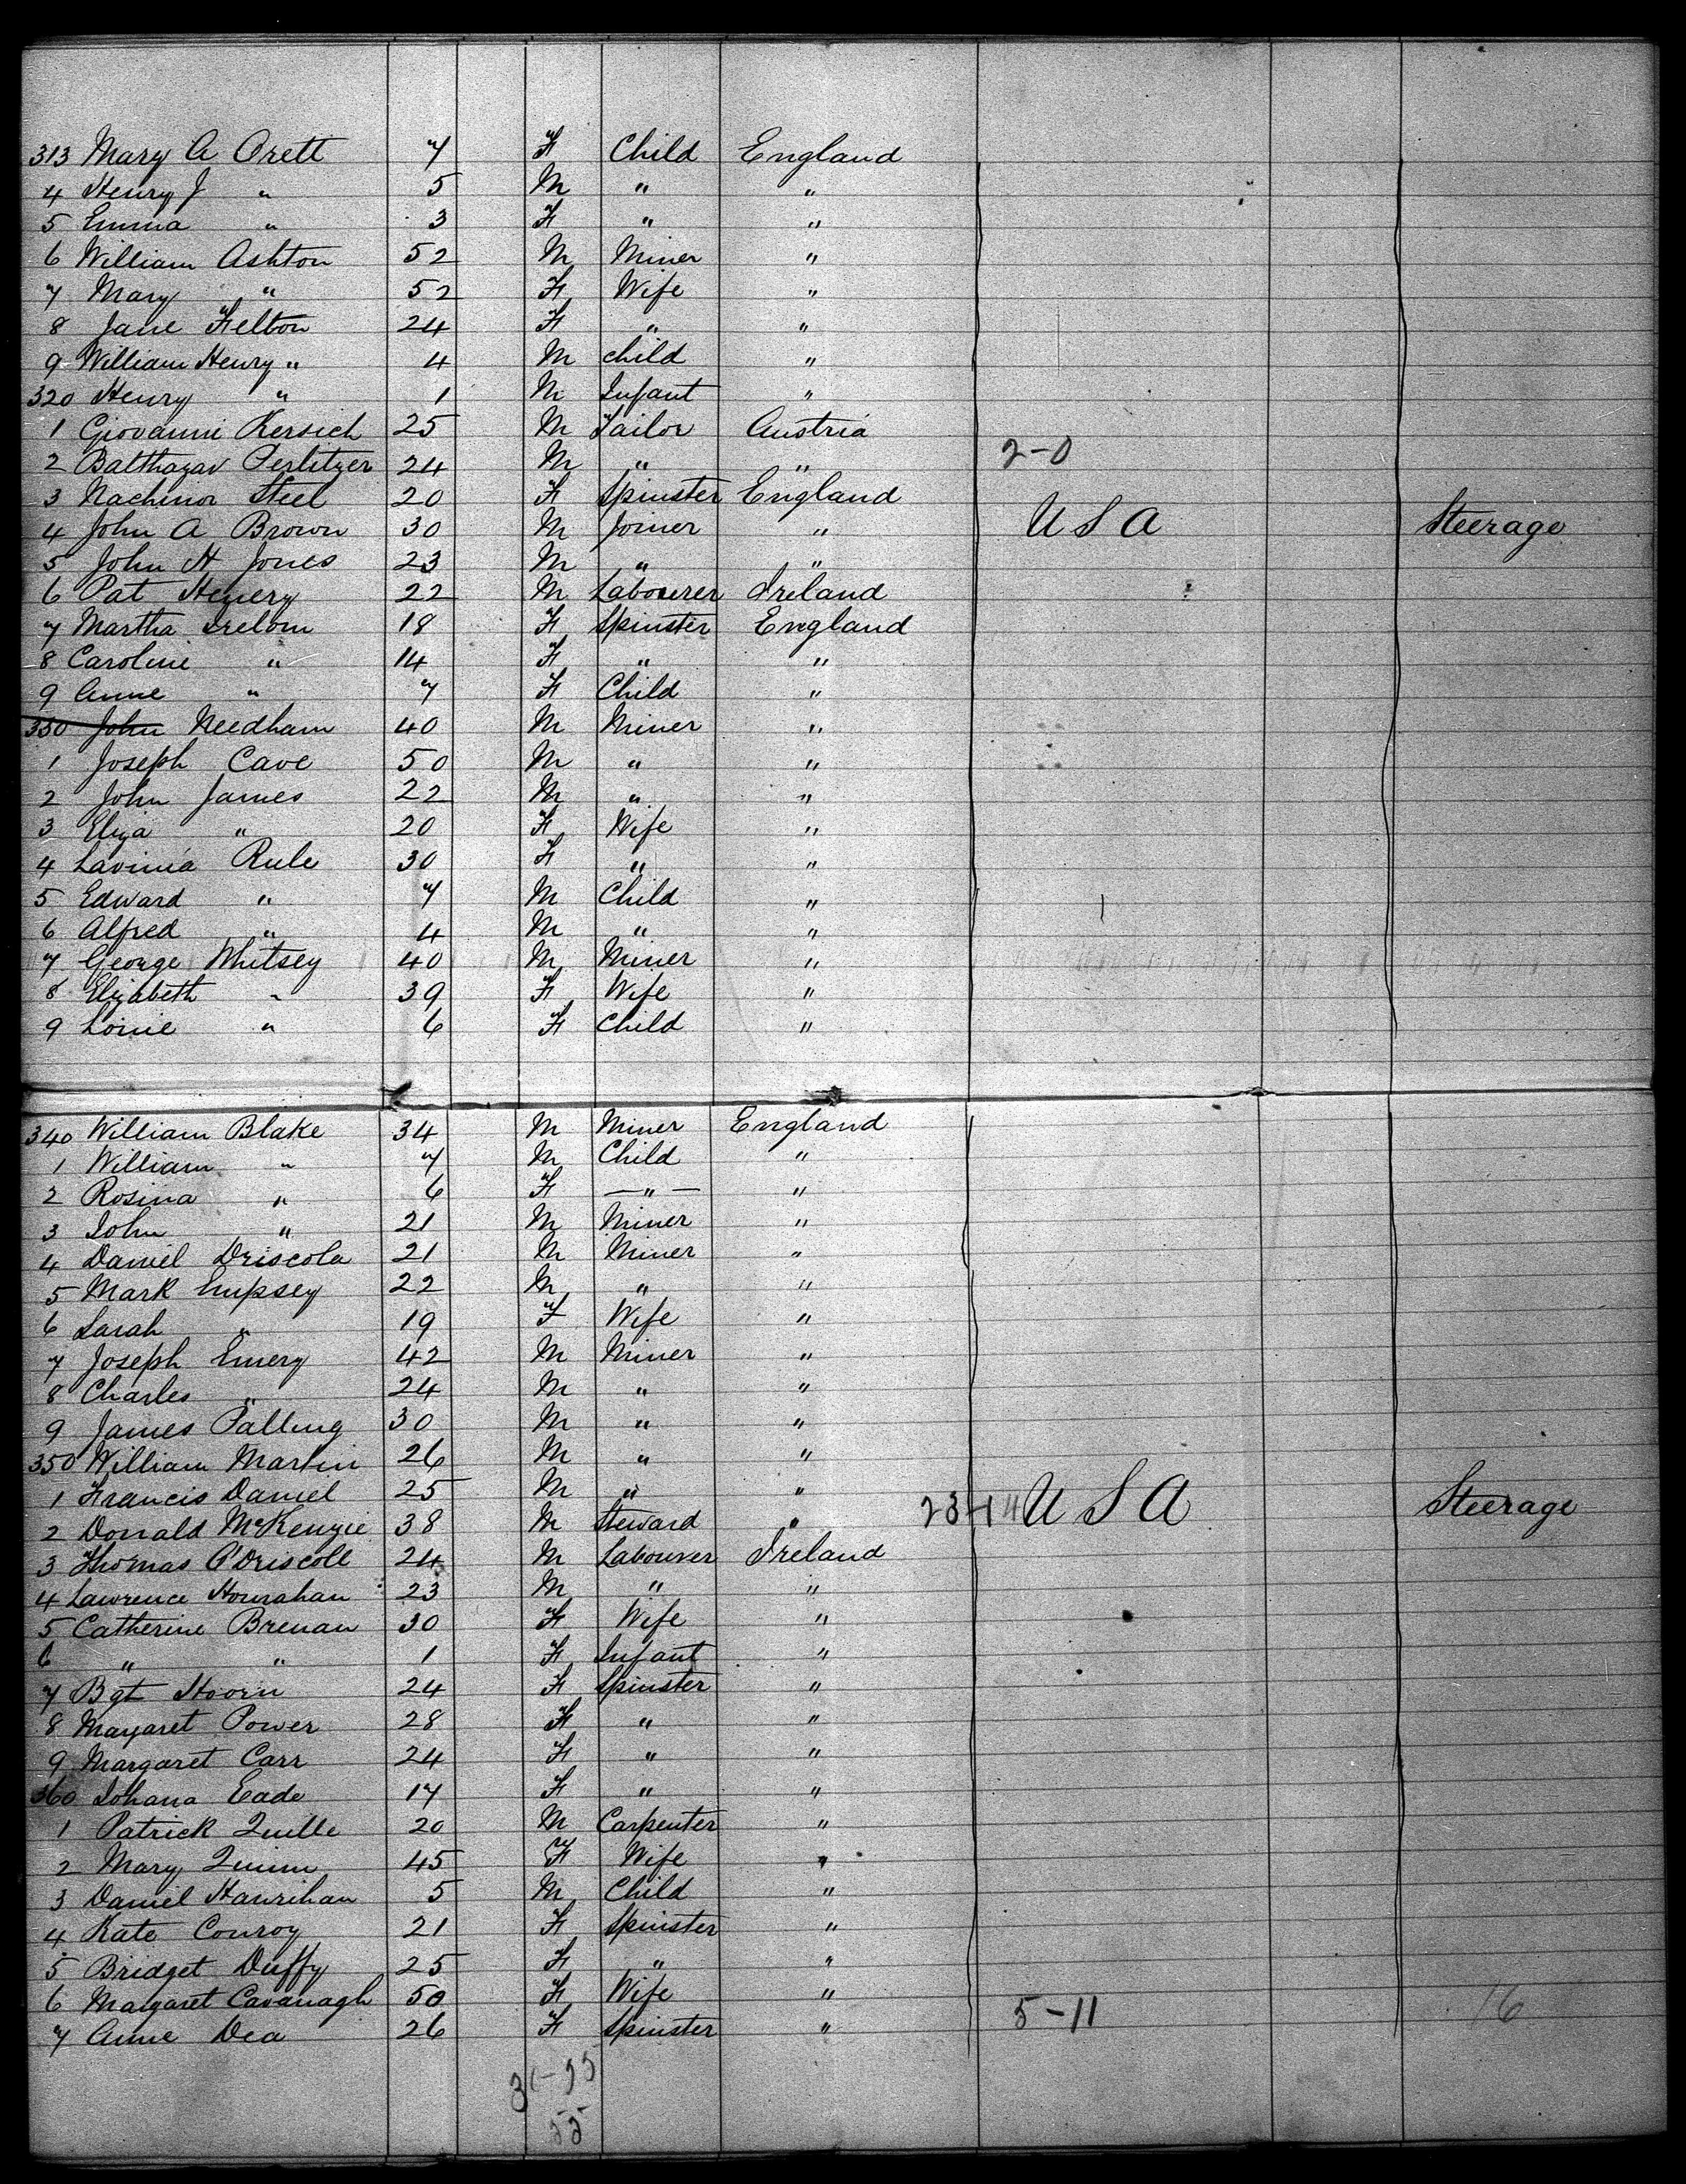 313 Mary A Orett 7 F Child England
4 Henry J " 5 M " "
5 Emma " 3 F " "
6 William Ashton 52 M Miner "
7 Mary " 52 F Wife "
8 Jane Felton 24 F " "
9 William Henry " 4 M child "
320 Henry " 1 M Infant "
1 Giovanni Kersich 25 M Tailor Austria
2 Balthazar Perlitzer 24 M " " 2-0
3 Steel 20 F Spinster England
4 John A Brown 30 M Joiner " U S A Steerage
5 John H Jones 23 M " "
6 Pat Henery 22 M Labourer Ireland
7 Martha Irelom 18 F Spinster England
8 Caroline " 14 F " "
9 Anne " 7 F Child "
330 John Needham 40 M Miner "
1 Joseph Cave 50 M " "
2 John James 22 M " "
3 Eliza " 20 F Wife "
4 Lavinia Rule 30 F " "
5 Edward " 7 M Child "
6 Alfred " 4 M " "
7 George Whitsey 40 M Miner "
8 Elizabeth " 39 F Wife "
9 Lonie " 6 F Child "
340 William Blake 34 M Miner England
1 William " 7 M Child "
2 Rosina " 6 F — " — "
3 John " 21 M Miner "
4 Daniel Driscola 21 M Miner "
5 Mark Empsey 22 M " "
6 Sarah " 19 F Wife "
7 Joseph Emery 42 M Miner "
8 Charles " 24 M " "
9 James Palling 30 M " "
350 William Martin 26 M " "
1 Francis Daniel 25 M " "
2 Donald McKenzie 38 M Steward " U S A Steerage
3 Thomas O'Driscoll 24 M Labourer Ireland
4 Lawrence Hourahan 23 M " "
5 Catherine Brenan 30 F Wife "
6 " " 1 F Infant "
7 Bgt Hoorn 24 F Spinster "
8 Margaret Power 28 F " "
9 Margaret Carr 24 F " "
360 Johana Eade 17 F " "
1 Patrick Quille 20 M Carpenter "
2 Mary Quinn 45 F Wife "
3 Daniel Hanrihan 5 M Child "
4 Kate Conroy 21 F Spinster "
5 Bridget Duffy 25 F " "
6 Margaret Cavanagh 50 F Wife " 5-11 16
7 Anne Dea 26 F Spinster "